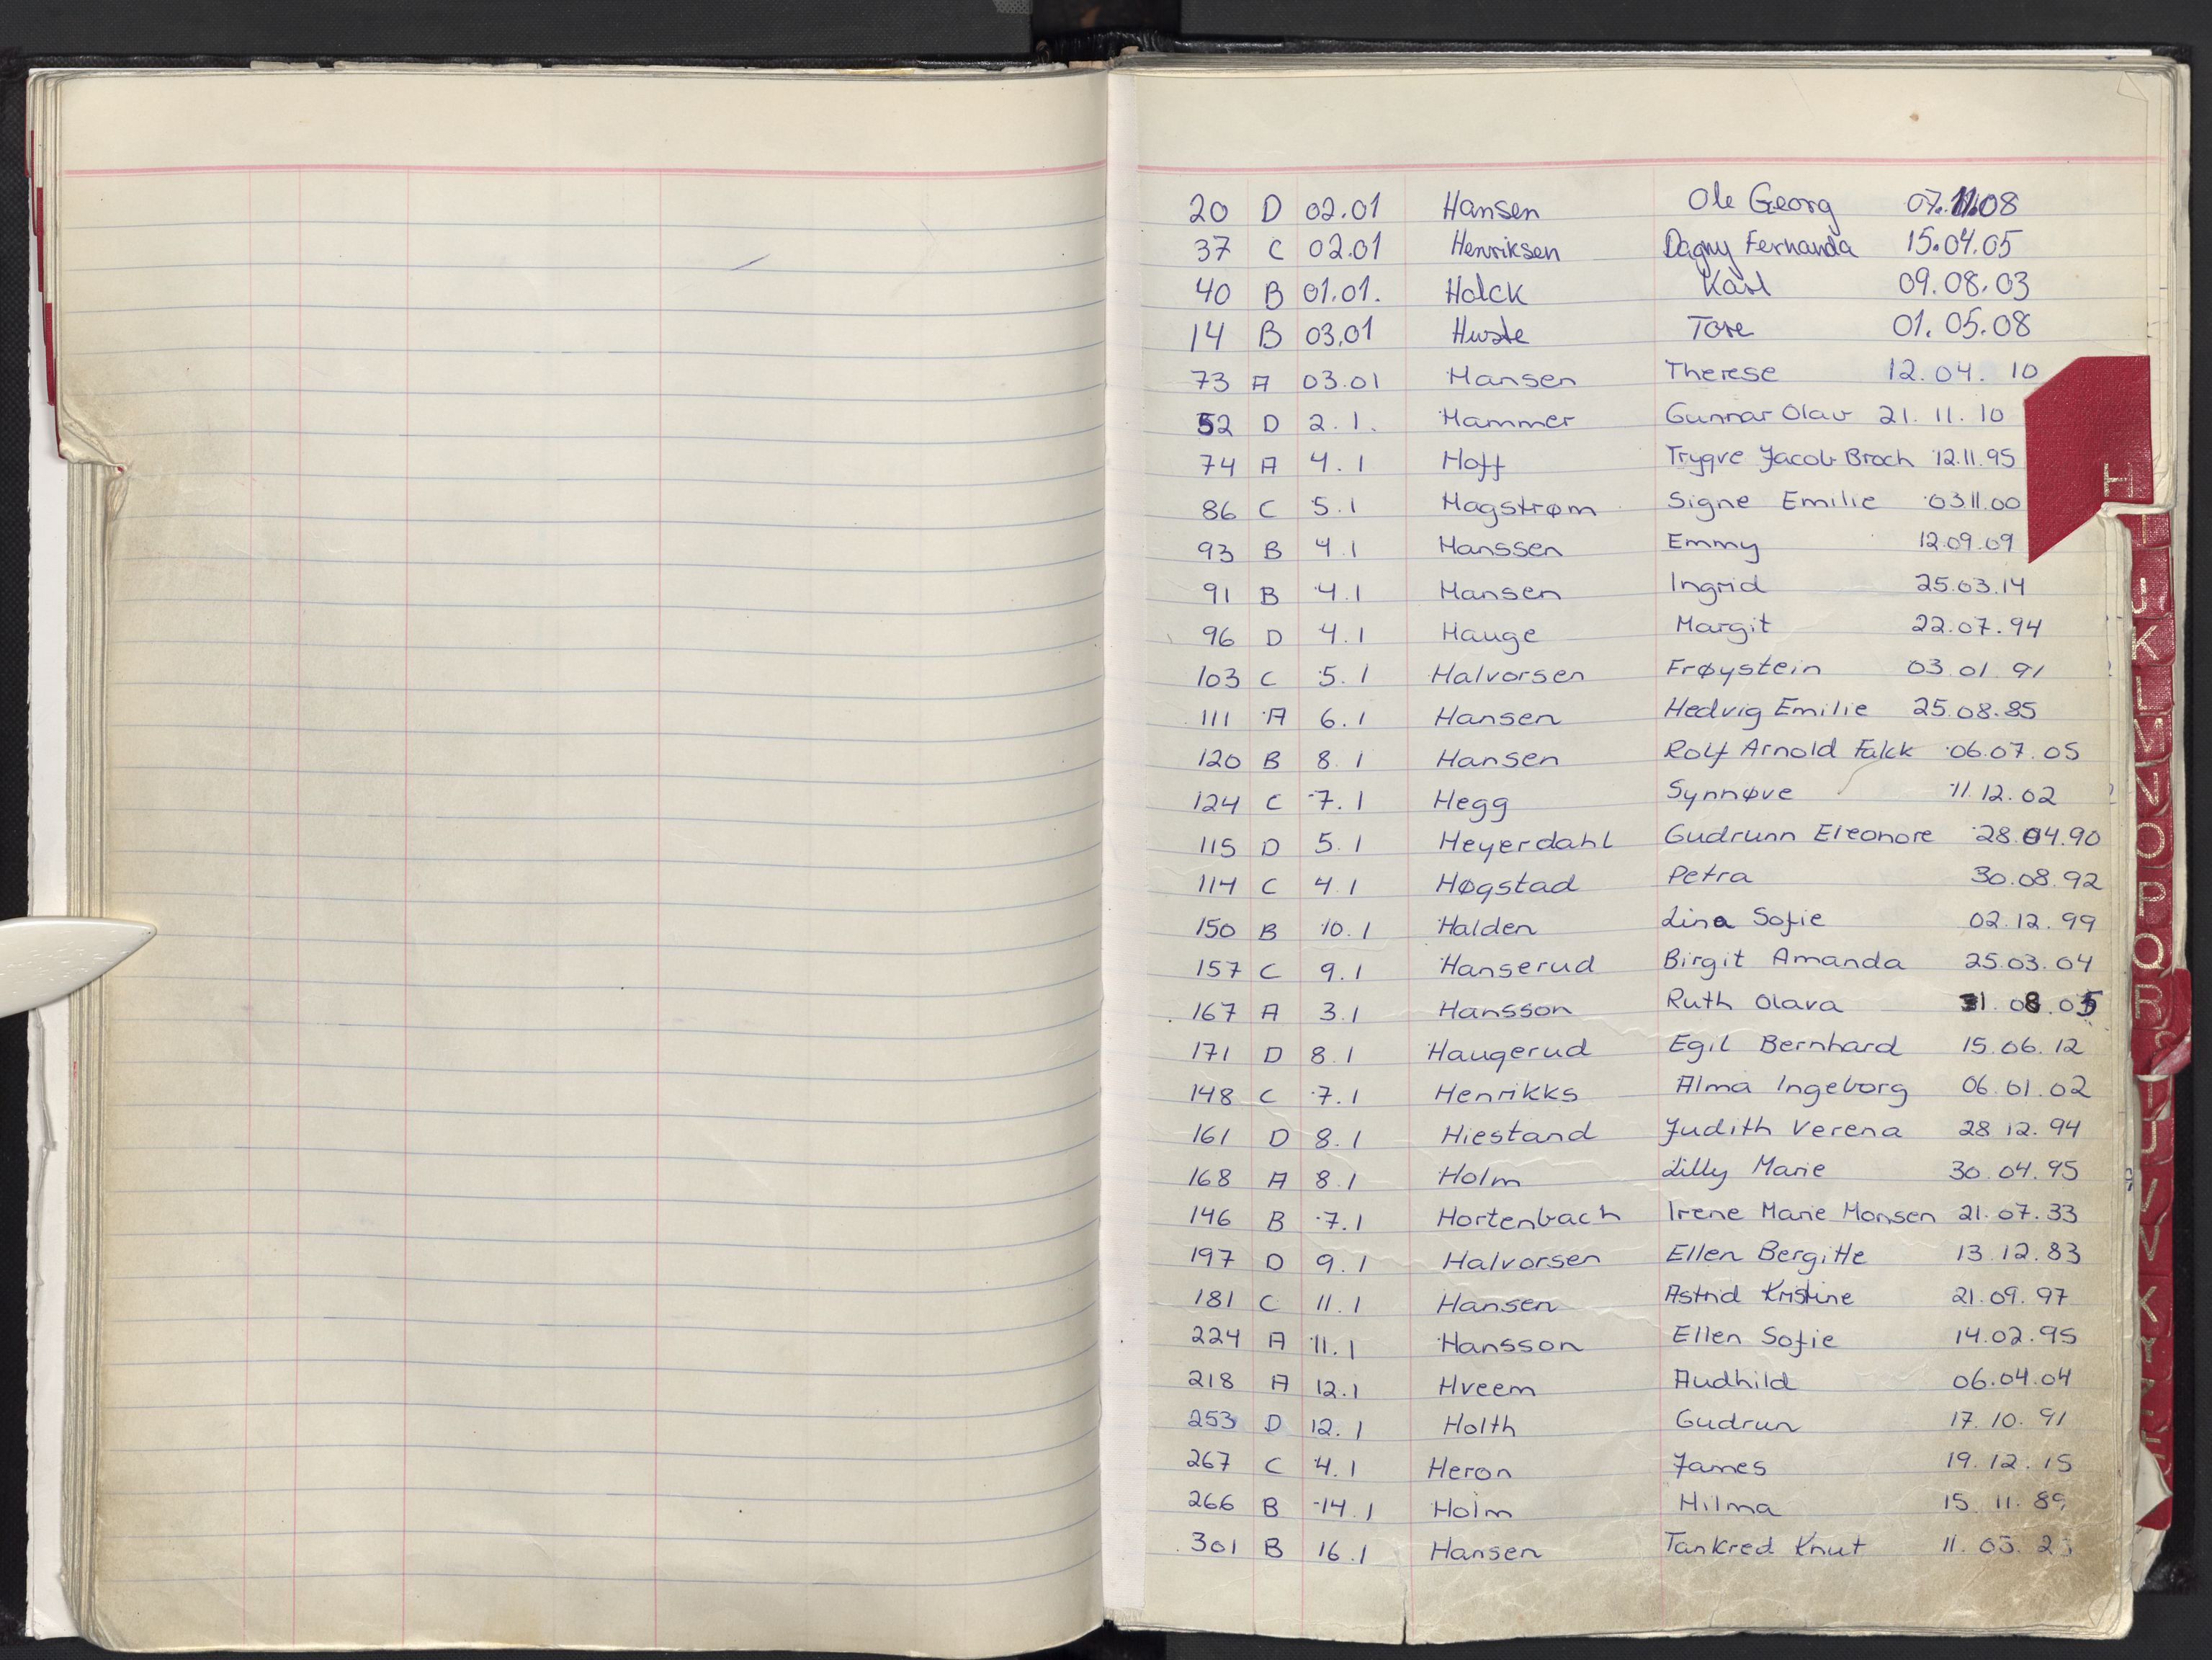 20 D 02.01 Hansen Ole Georg 07.11.08
37 C 02.01 Henriksen Dagny Fernanda 15.04.05
40 B 01.01. Holck Karl 09.08.03
14 B 03.01 Tore 01.05.08
73 A 03.01 Hansen Therese 12.04.10
52 D 2.1. Hammer Gunnar Olav 21.11.10
74 A 4.1 Hoff Trygve Jacob Broch 12.11.95
86 C 5.1 Hagstrøm Signe Emilie 03.11.00
93 B 4.1 Hanssen Emmy 12.09.09
91 B 4.1 Hansen Ingrid 25.03.14
96 D 4.1 Hauge Margit 22.07.94
103 C 5.1 Halvorsen Frøystein 03.01.91
111 A 6.1 Hansen Hedvig Emilie 25.08.85
120 B 8.1 Hansen Rolf Arnold Falck 06.07.05
124 C 7.1 Hegg Synnøve 11.12.02
115 D 5.1 Heyerdahl Gudrunn Eleonore 28.04.90
114 C 4.1 Høgstad Petra 30.08.92
150 B 10.1 Halden Lina Sofie 02.12.99
157 C 9.1 Hanserud Birgit Amanda 25.03.04
167 A 3.1 Hansson Ruth Olava 31.08.05
171 D 8.1 Haugerud Egil Bernhard 15.06.12
148 C 7.1 Henrikks Alma Ingeborg 06.01.02
161 D 8.1 Hiestand Judith Verena 28.12.94
168 A 8.1 Holm Lilly Marie 30.04.95
146 B 7.1 Hortenbach Irene Marie Monsen 21.07.33
197 D 9.1 Halvorsen Ellen Bergitte 13.12.83
181 C 11.1 Hansen Astrid Kristine 21.09.97
224 A 11.1 Hansson Ellen Sofie 14.02.95
218 A 12.1 Hveem Audhild 06.04.04
253 D 12.1 Holth Gudrun 17.10.91
267 C 4.1 Heron James 19.12.15
266 B 14.1 Holm Hilma 15.11.89
301 B 16.1 Hansen Tankred Knut
H
I
J
K
L
M
N
O
P
Q
R